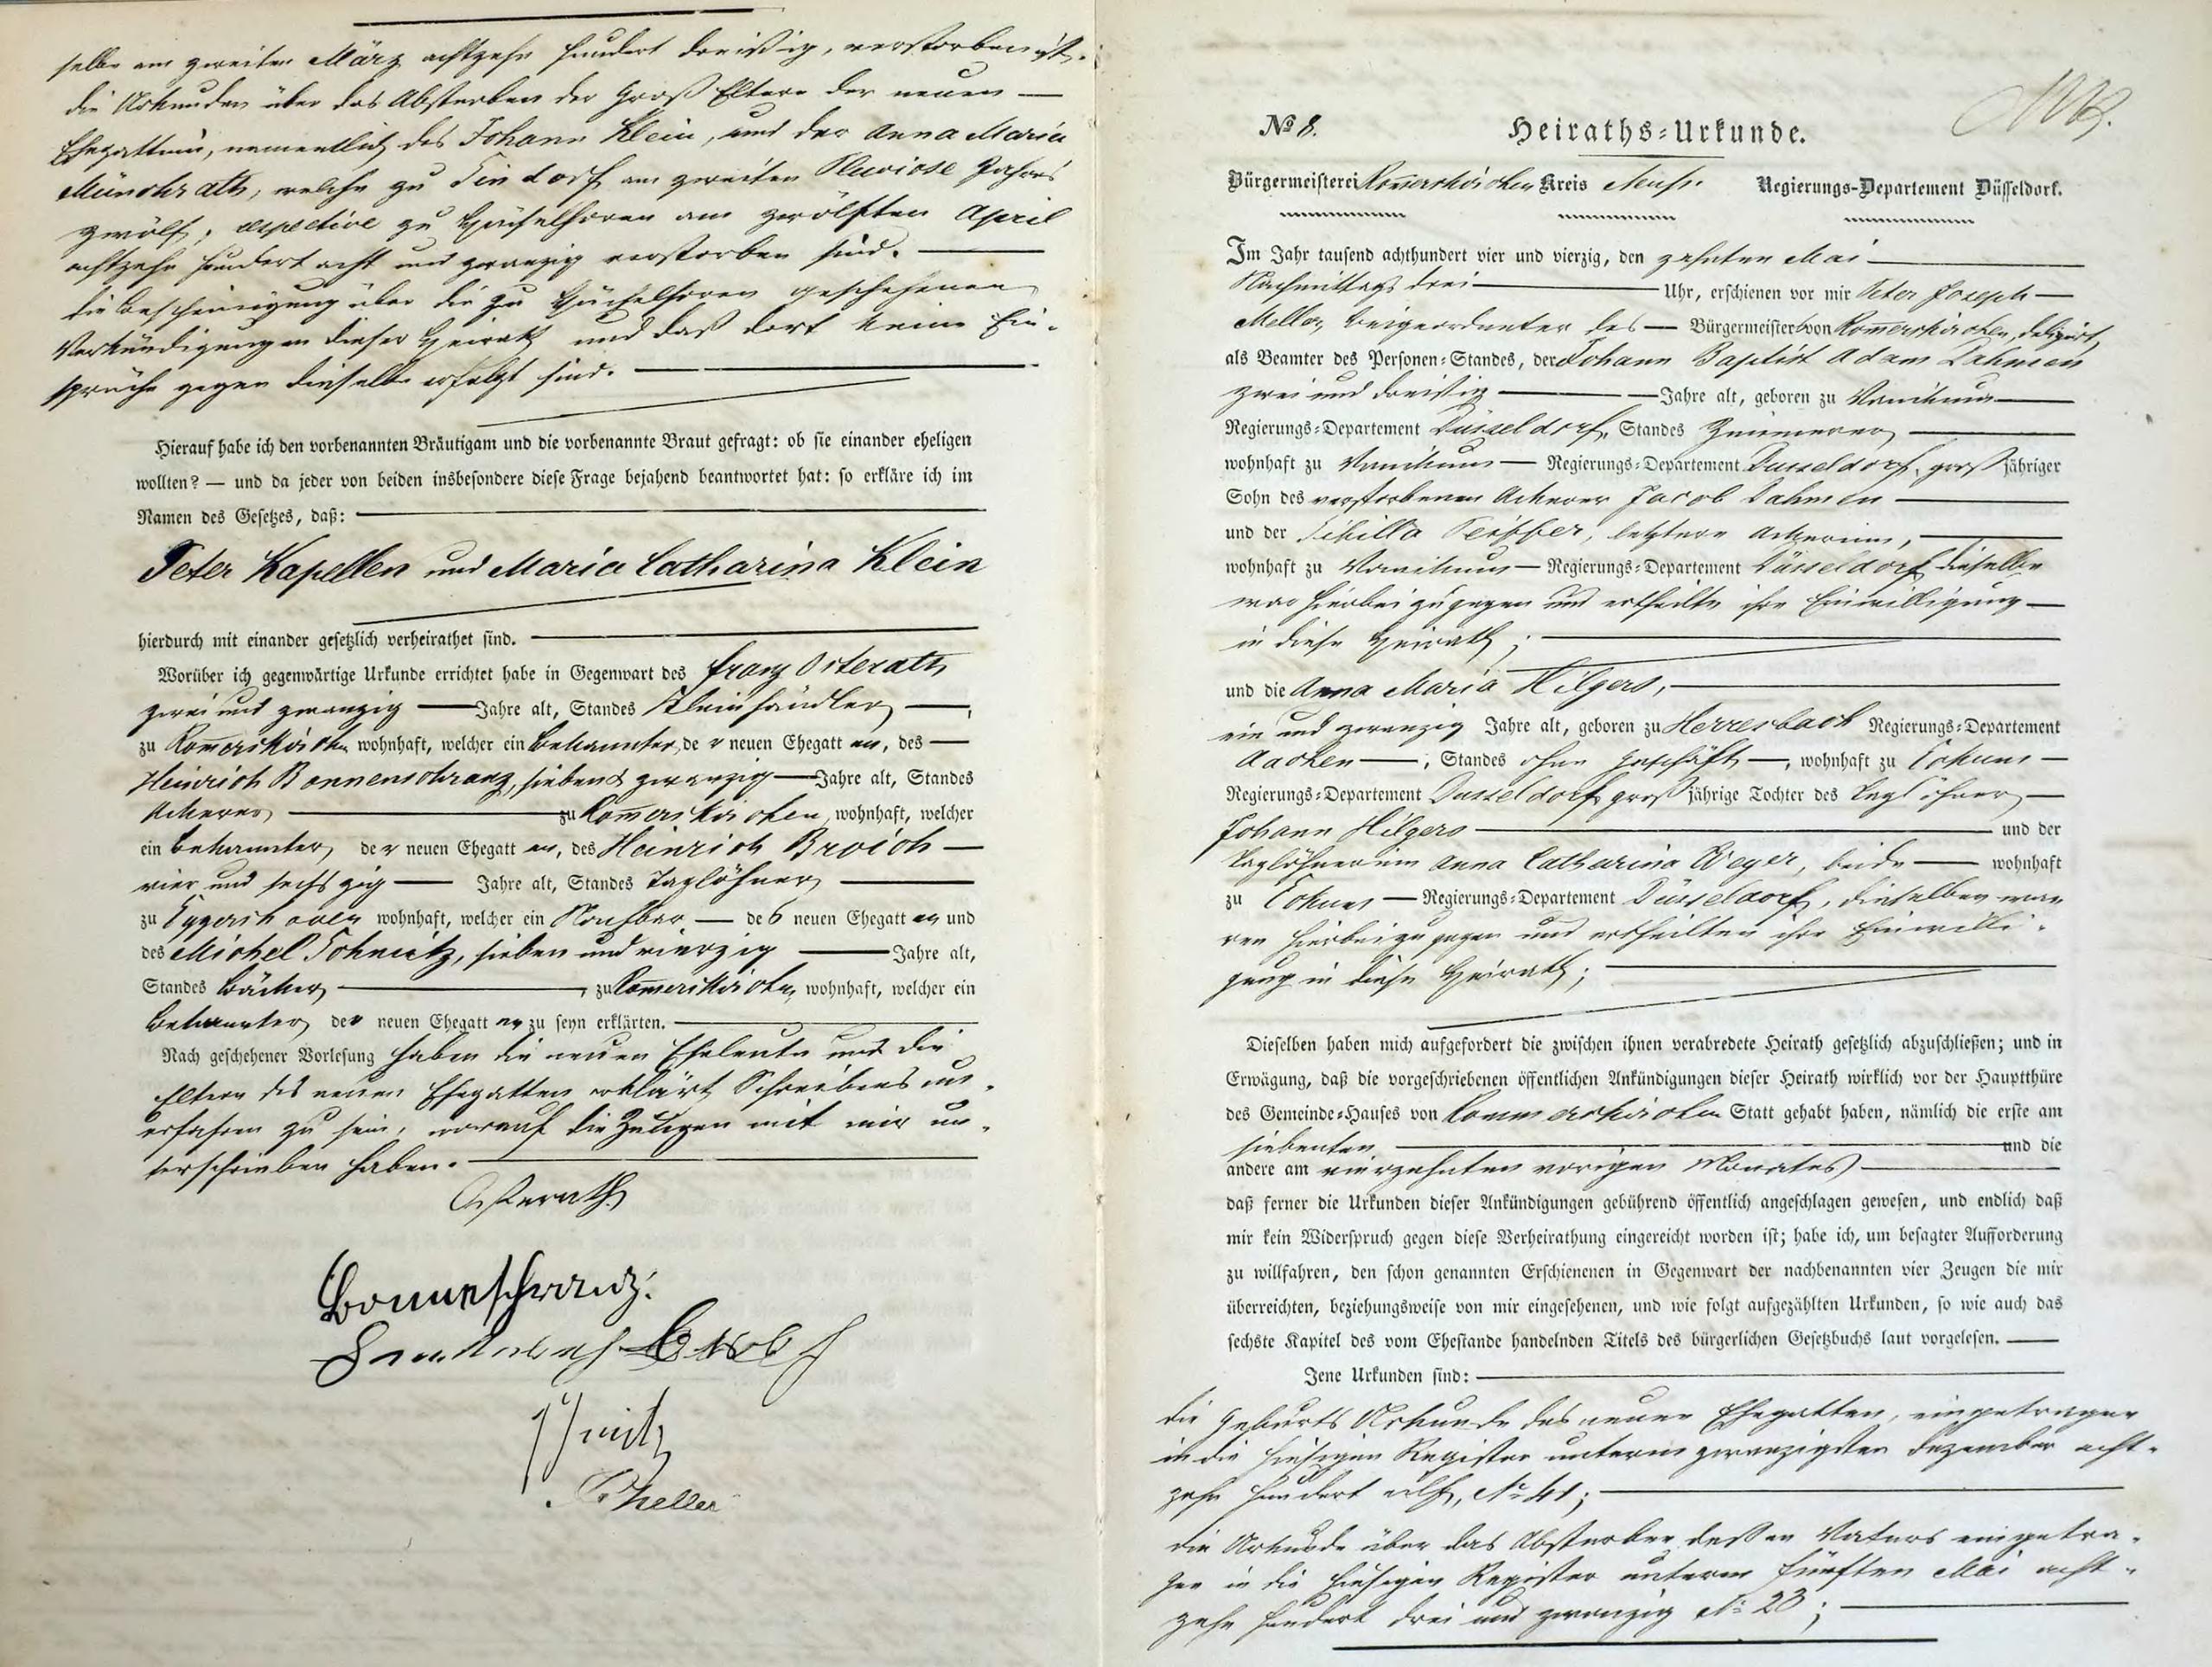 selbe am zweiten März achtzehn hundert dreißig, verstorben ist.
die Urkunden über das Absterben der Groß Eltern der neuen
Ehegattinn, namentlich des Johann Klein, und der Anna Maria
Münchrath, welche zu Sindorf am zweiten Pluviose Jahres
zwölf, respective zu Hüchelhoven am zwölften April
achtzehn hundert acht und zwanzig verstorben sind.
die Bescheinigung über die zu Hüchelhoven geschehenen
Verkündigungen dieser Heirath und daß dort keine Ein-
sprüche gegen dieselbe erfolgt sind.
Hierauf habe ich den vorbenannten Bräutigam und die vorbenannte Braut gefragt: ob sie einander eheligen
wollten? — und da jeder von beiden insbesondere diese Frage bejahend beantwortet hat: so erkläre ich im
Namen des Gesetzes, daß:
Peter Kapellen und Maria Catharina Klein
hierdurch mit einander gesetzlich verheirathet sind.
Worüber ich gegenwärtige Urkunde errichtet habe in Gegenwart des Franz Osterath
zwei und zwanzig Jahre alt, Standes Kleinhändler,
zu Rom̅erskirchen wohnhaft, welcher ein Bekannter, der neuen Ehegatten, des
Heinrich Bonnenschranz, sieben & zwanzig Jahre alt, Standes
Ackerer zu Rom̅erskirchen, wohnhaft, welcher
ein Bekannter, der neuen Ehegatten, des Heinrich Broich
vier und sechszig Jahre alt, Standes Taglöhner
zu Eggershoven wohnhaft, welcher ein Nachbar des neuen Ehegatten und
des Michel Schmitz, sieben und vierzig Jahre alt,
Standes Bäcker, zu Rom̅erskirchen, wohnhaft, welcher ein
Bekannter der neuen Ehegatten zu seyn erklärten.
Nach geschehener Vorlesung haben die neuen Eheleute und die
Eltern des neuen Ehegatten erklärt Schreibens un-
erfahren zu sein, worauf die Zeugen mit mir un-
terschrieben haben.
Osterath
Bonnenschranz.
Schmitz
№ 8.
Heiraths-Urkunde.
Bürgermeisterei Rom̅erskirchen Kreis Neuss. Regierungs-Departement Düsseldorf.
Im Jahr tausend achthundert vier und vierzig, den zehnten Mai
Nachmittags drei Uhr, erschienen vor mir Peter Joseph
Beigeordneter des Bürgermeisters von Rom̅erskirchen, delegirt,
als Beamter des Personen-Standes, der Johann Baptist Adam Dahmen
zwei und dreißig Jahre alt, geboren zu Vanikum
Regierungs-Departement Düsseldorf, Standes Zimmerer
wohnhaft zu Vanikum Regierungs-Departement Düsseldorf, großjähriger
Sohn des verstorbenen Ackerer Jacob Dahmen
und der Sibilla Peiffer, letztere Ackerinn,
wohnhaft zu Vanikum Regierungs-Departement Düsseldorf dieselbe
war hierbei zugegen und ertheilte ihre Einwilligung
in diese Heirath;
und die Anna Maria Hilgers,
ein und zwanzig Jahre alt, geboren zu Herresbach Regierungs-Departement
Aachen, Standes ohne Geschäft, wohnhaft zu Eckum
Regierungs-Departement Düsseldorf großjährige Tochter des Taglöhner
Johann Hilgers und der
Taglöhnerinn Anna Catharina Weyer, beide wohnhaft
zu Eckum Regierungs-Departement Düsseldorf, dieselben wa-
ren hierbei zugegen und ertheilten ihre Einwilli-
gung in diese Heirath;
Dieselben haben mich aufgefordert die zwischen ihnen verabredete Heirath gesetzlich abzuschließen; und in
Erwägung, daß die vorgeschriebenen öffentlichen Ankündigungen dieser Heirath wirklich vor der Hauptthüre
des Gemeinde-Hauses von Rommerskirchen Statt gehabt haben, nämlich die erste am
siebenten und die
andere am vierzehnten vorigen Monates
daß ferner die Urkunden dieser Ankündigungen gebührend öffentlich angeschlagen gewesen, und endlich daß
mir kein Widerspruch gegen diese Verheirathung eingereicht worden ist; habe ich, um besagter Aufforderung
zu willfahren, den schon genannten Erschienenen in Gegenwart der nachbenannten vier Zeugen die mir
überreichten, beziehungsweise von mir eingesehenen, und wie folgt aufgezählten Urkunden, so wie auch das
sechste Kapitel des vom Ehestande handelnden Titels des bürgerlichen Gesetzbuchs laut vorgelesen.
Jene Urkunden sind:
die Geburts Urkunde des neuen Ehegatten, eingetragen
in die hiesigen Register unterm zwanzigsten Dezember acht-
zehn hundert eilf, № 41;
die Urkunde über das Absterben dessen Vaters eingetra-
gen in die hiesigen Register unterm fünften Mai acht-
zehn hundert drei und zwanzig № 23;